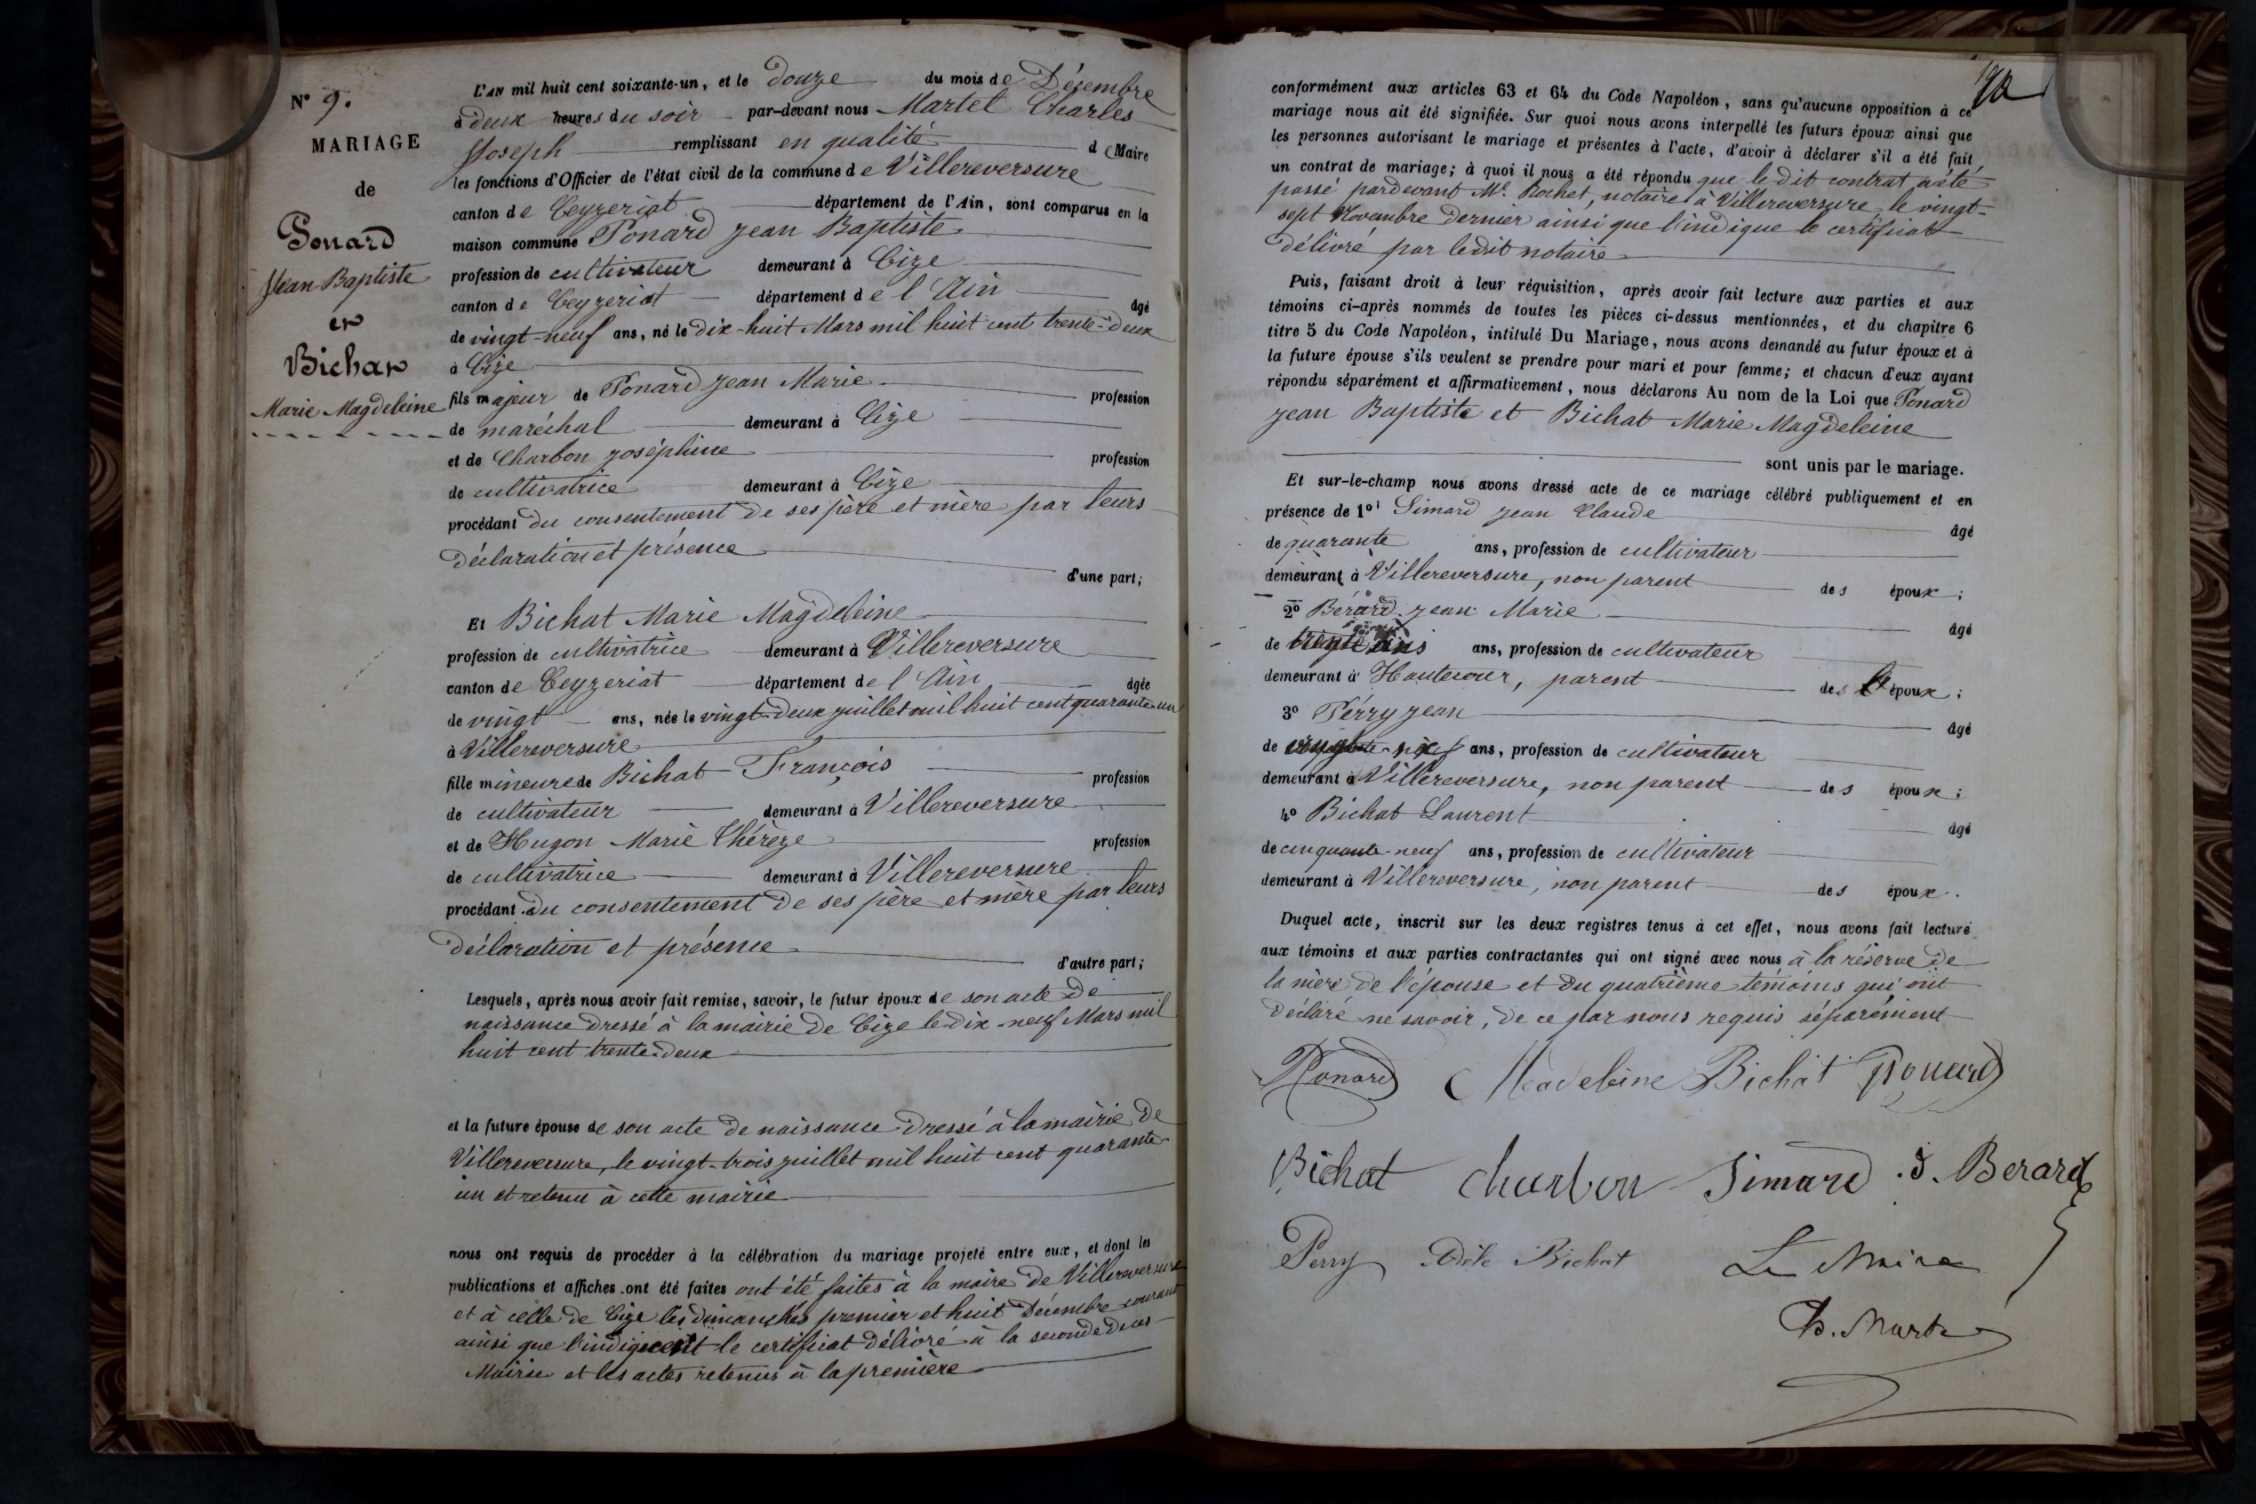 N° 9.
MARIAGE
de
Ponard
Jean Baptiste
et
Bichat
Marie Magdeleine
L'AN mil huit cent soixante-un, et le douze du mois de Décembre
à deux heures du soir par-devant nous Martel Charles
Joseph remplissant en qualité d Maire
les fonctions d'Officier de l'état civil de la commune de Villereversure
canton de Ceyzeriat département de l'Ain, sont comparus en la
maison commune Ponard Jean Baptiste
profession de cultivateur demeurant à Cize
canton de Ceyzeriat département de l'Ain âgé
de vingt-neuf ans, né le dix-huit Mars mil huit cent trente-deux
à Cize
fils majeur de Ponard Jean Marie profession
de maréchal demeurant à Cize
et de Charbon Joséphine profession
de cultivatrice demeurant à Cize
procédant du consentement de ses père et mère par leurs
déclaration et présence
d'une part;
Et Bichat Marie Magdeleine
profession de cultivatrice demeurant à Villereversure
canton de Ceyzeriat département de l'Ain âgée
de vingt ans, née le vingt-deux juillet mil huit cent quarante-un
à Villereversure
fille mineure de Bichat François profession
de cultivateur demeurant à Villereversure
et de Hugon Marie Thérèze profession
de cultivatrice demeurant à Villereversure
procédant du consentement de ses père et mère par leurs
déclaration et présence
d'autre part;
Lesquels, après nous avoir fait remise, savoir, le futur époux de son acte de
naissance dressé à la mairie de Cize le dix-neuf Mars mil
huit cent trente-deux
et la future épouse de son acte de naissance dressé à la mairie de
Villereversure, le vingt-trois juillet mil huit cent quarante-
un et retenu à cette mairie
nous ont requis de procéder à la célébration du mariage projeté entre eux, et dont les
publications et affiches ont été faites ont été faites à la maire de Villereversure
et à celle de Cize les dimanches premier et huit Décembre courant
ainsi que l'indiquent le certificat délivré à la seconde de ces
Mairie et les actes retenus à la première
conformément aux articles 63 et 64 du Code Napoléon, sans qu'aucune opposition à ce
mariage nous ait été signifiée. Sur quoi nous avons interpellé les futurs époux ainsi que
les personnes autorisant le mariage et présentes à l'acte, d'avoir à déclarer s'il a été fait
un contrat de mariage; à quoi il nous a été répondu que le dit contrat a été
passé pardevant Me. Rochet, notaire à Villereversure, le vingt-
sept Novembre dernier ainsi que l'indique le certificat
délivré par ledit notaire
Puis, faisant droit à leur réquisition, après avoir fait lecture aux parties et aux
témoins ci-après nommés de toutes les pièces ci-dessus mentionnées, et du chapitre 6
titre 5 du Code Napoléon, intitulé Du Mariage, nous avons demandé au futur époux et à
la future épouse s'ils veulent se prendre pour mari et pour femme; et chacun d'eux ayant
répondu séparément et affirmativement, nous déclarons Au nom de la Loi que Ponard
Jean Baptiste et Bichat Marie Magdeleine
sont unis par le mariage.
Et sur-le-champ nous avons dressé acte de ce mariage célébré publiquement et en
présence de 1° Simard Jean Claude
âgé
de quarante ans, profession de cultivateur
demeurant à Villereversure, non parent des époux;
2° Bérard Jean Marie
âgé
de ans, profession de cultivateur
demeurant à Hautecour, parent des époux;
3° Pérry Jean
âgé
de ans, profession de cultivateur
demeurant à Villereversure, non parent des époux;
4° Bichat Laurent
âgé
de cinquante-neuf ans, profession de cultivateur
demeurant à Villereversure, non parent des époux.
Duquel acte, inscrit sur les deux registres tenus à cet effet, nous avons fait lecture
aux témoins et aux parties contractantes qui ont signé avec nous à la réserve de
la mère de l'épouse et du quatrième témoins qui ont
déclaré ne savoir, de ce par nous requis séparément
Ponard Madeleine Bichat Ponard
Bichat Charbon Simard J. Berard
Perry Bichat Le Maire
Ch. Martel